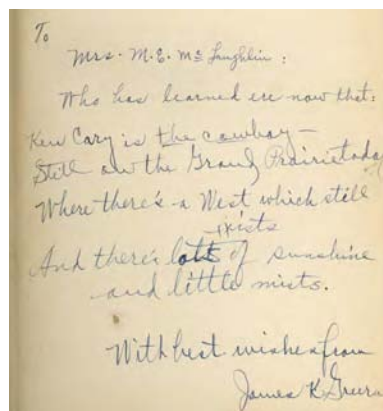 To
Mrs. M.E. McLaughlin:
Who has learned ere now that:
Ken Cary is the cowboy –
Still on the Grand Prairie today
Where there's a West which still
exists
And there's lots of sunshine
and little mists.
With best wishes from
James K. Greer